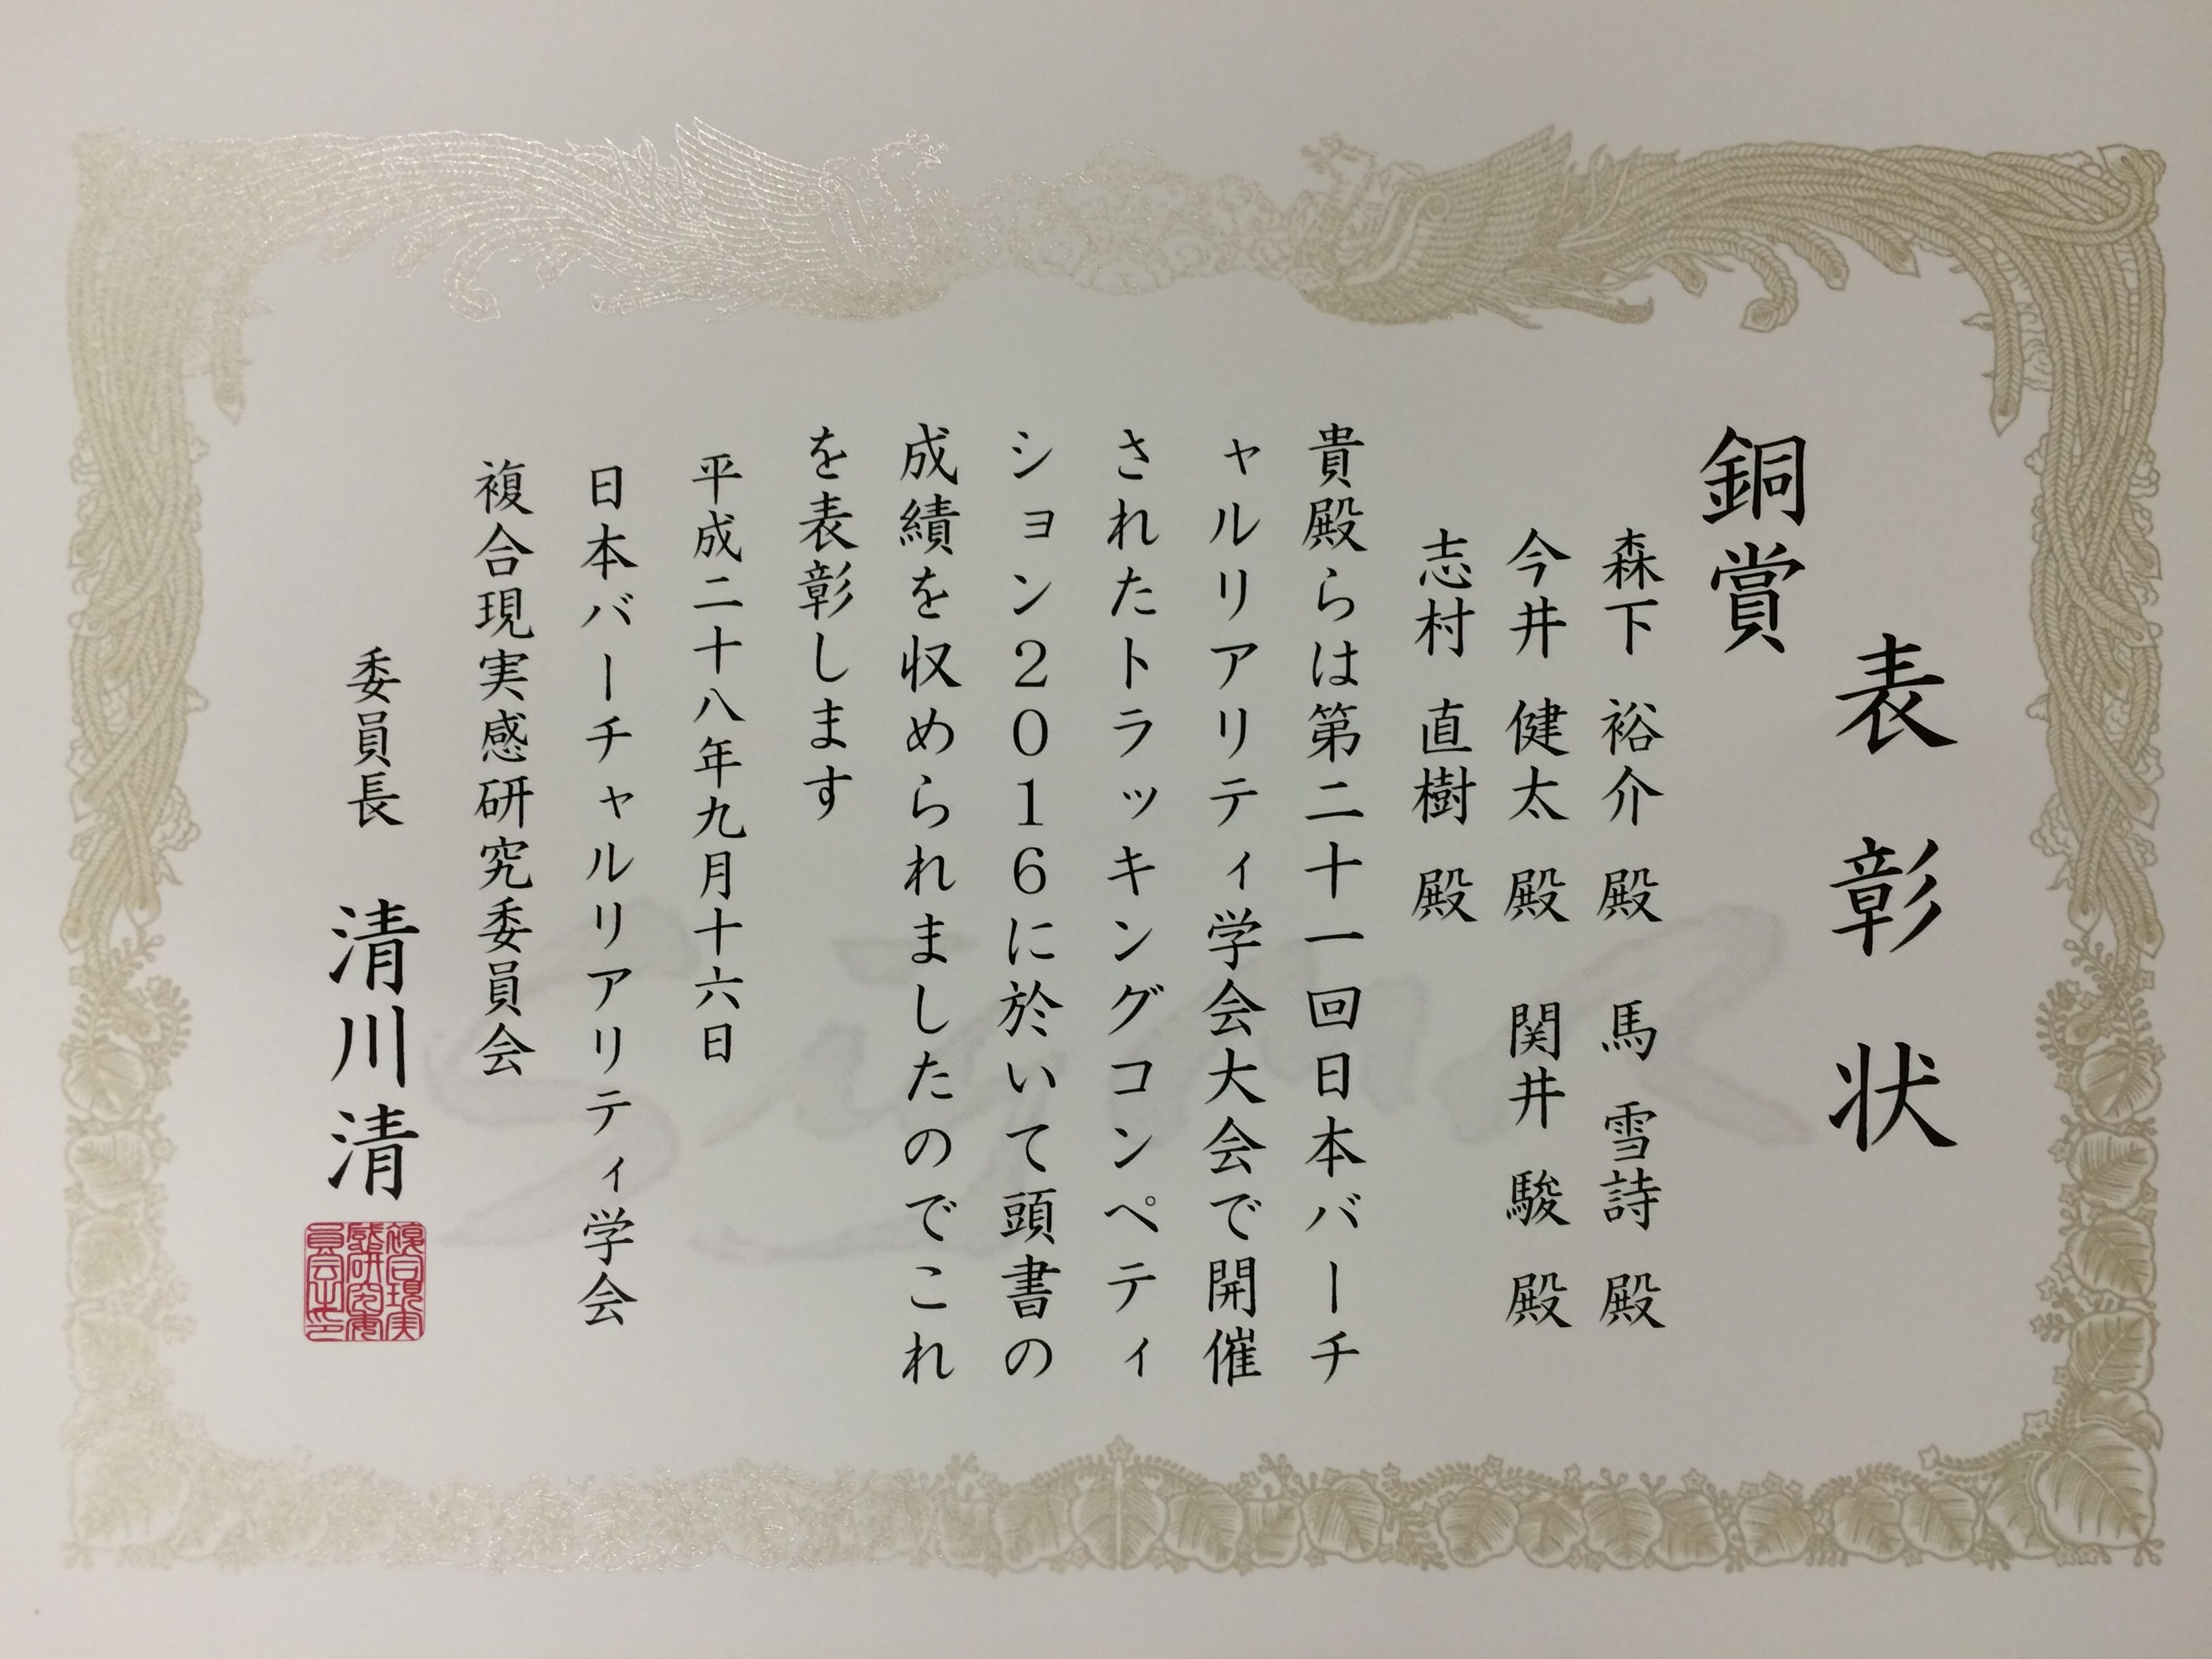 表彰状
銅賞
森下 裕介 殿 馬 雪詩 殿
今井 健太 殿 関井 駿 殿
志村 直樹 殿
貴殿らは第二十一回日本バーチ
ャルリアリティ学会大会で開催
されたトラッキングコンペティ
ション2016に於いて頭書の
成績を収められましたのでこれ
を表彰します
平成二十八年九月十六日
日本バーチャルリアリティ学会
複合現実感研究委員会
委員長 清川清
複合現実
感研究委
員会之印